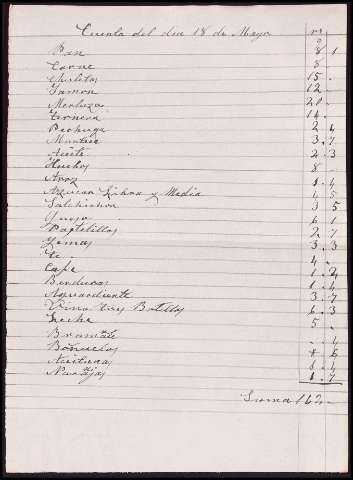 Cuenta del dia 18 de Mayo
Pan 8 1
Carne 8
Chuletas 15 -
Jamon 12 -
Merluza 20 -
Ternera 14 -
Pechuga 2 4
Manteca 3 7
Aceite 2 3
Huebos 8 -
Aroz 1 4
Azucar Libra y Media 4 5
Salchichon 3 5
Queso 6 1
Pastelillos 2 7
Llemas 3 3
Te 4 -
Cafe 1 2
Berduras 1 4
Aguardiente 3 7
Vino tres Botellas 6 3
Leche 5 -
Bramate - 4
Boñuelos 6
Aceitunas 1 4
Naranjas 1 7
Suma 162 -